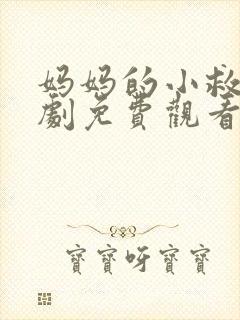 妈妈的小救
劇免費觀看
寶寶呀寶寶